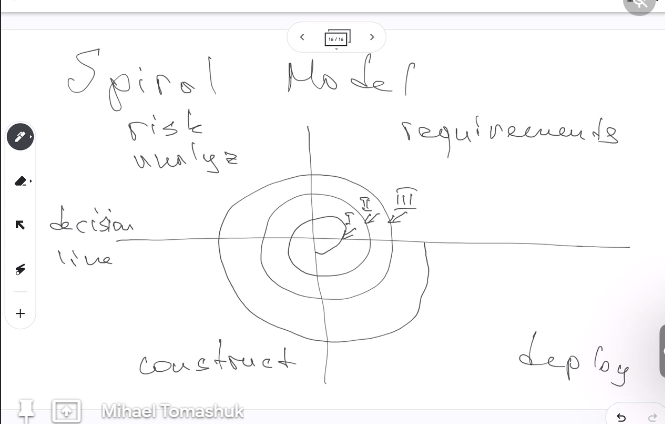 16 / 16
Spiral Model
risk
analyz
requirements
I II III
decision
line
construct
deploy
Mihael Tomashuk